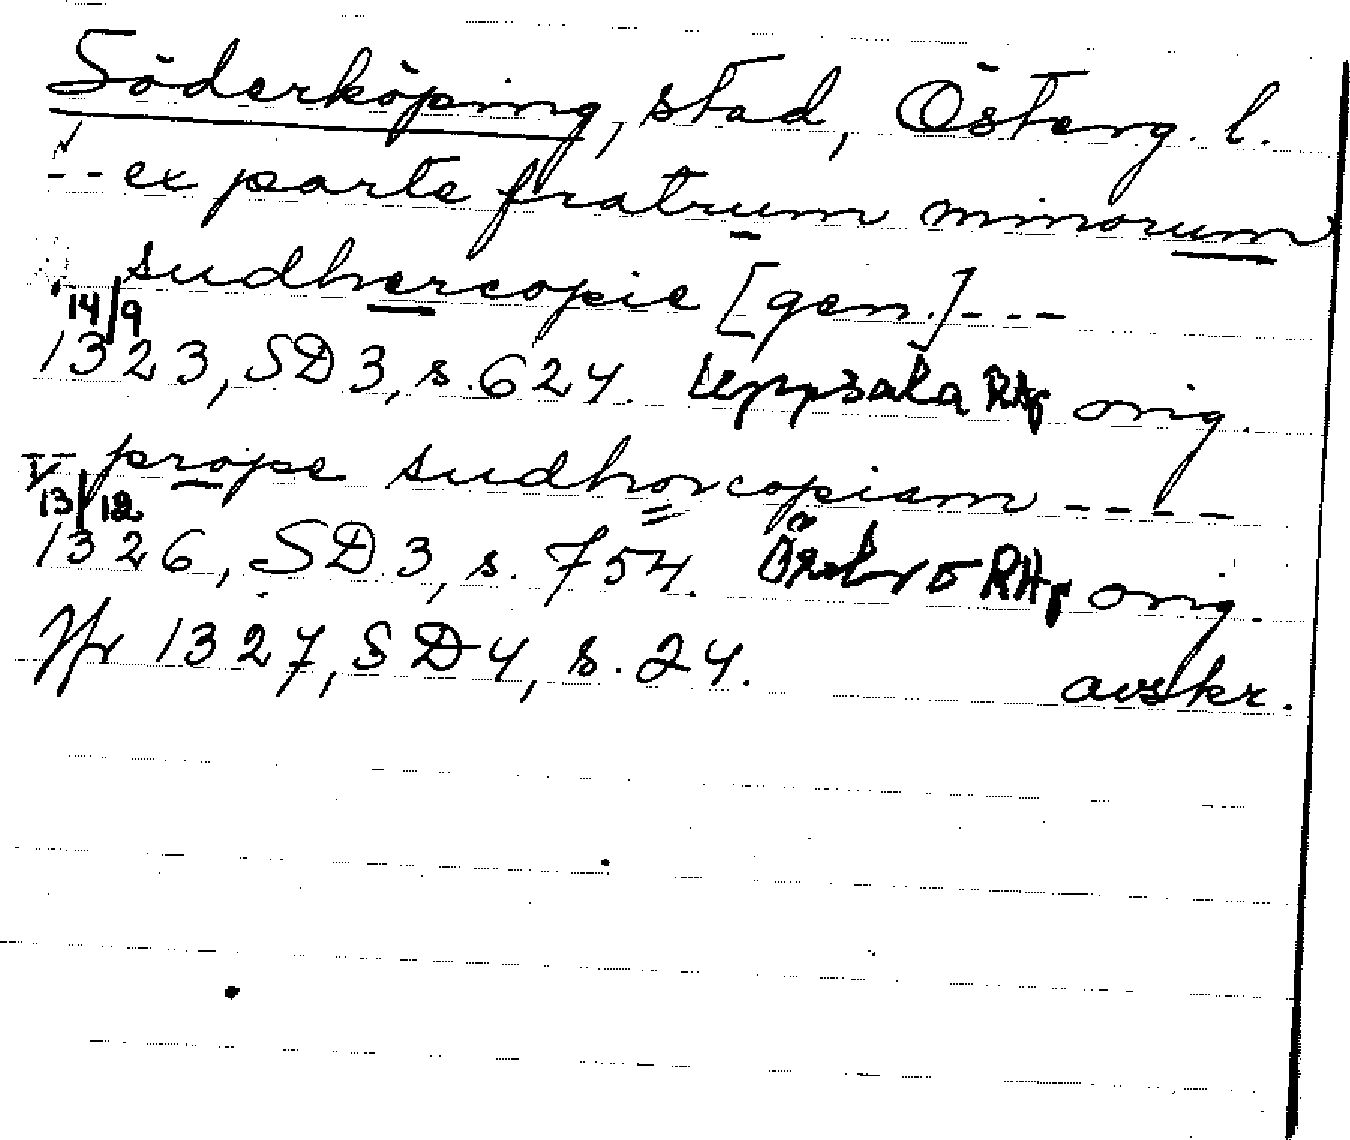 Söderköping, stad, Österg. l.
-- ex parte fratrum minorum
sudhercopie [gen.] ---
14/9
1323, SD 3, s. 624. Uppsala RAp orig.
prope sudhorcopiam ----
13/12
1326, SD 3, s. 754. Örebro RAp orig.
Jfr 1327, SD 4, s. 24. avskr.